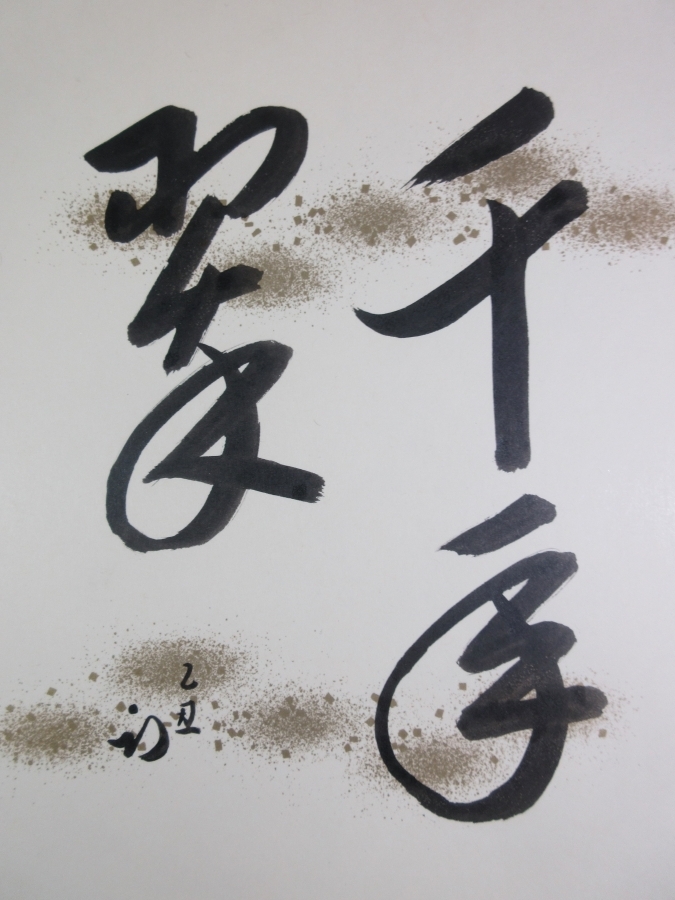 千年
翠
乙丑